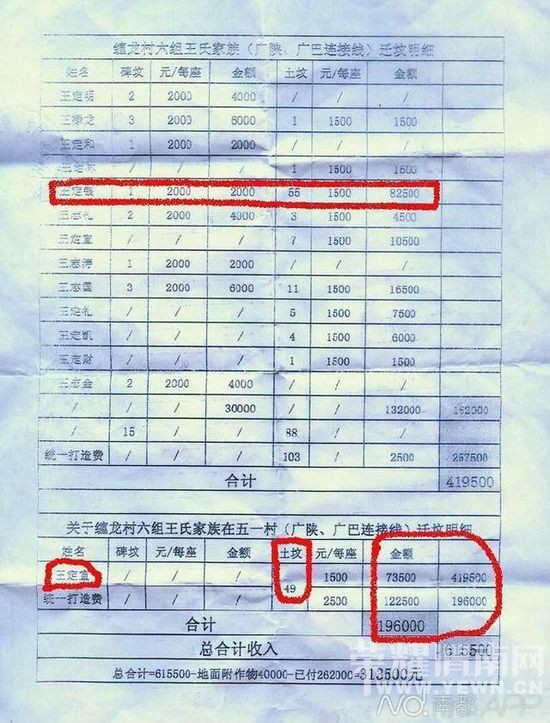 缠龙村六组王氏家族（广陕、广巴连接线）迁坟明细
姓名 碑坟 元/每座 金额 土坟 元/每座 金额
王定明 2 2000 4000 / / /
王缘龙 3 2000 6000 1 1500 1500
王定和 1 2000 2000 / / /
王定林 / / / 1 1500 1500
王定银 1 2000 2000 55 1500 82500
王志礼 2 2000 4000 3 1500 4500
王定宣 / / / 7 1500 10500
王志涛 1 2000 2000 / / /
王志国 3 2000 6000 11 1500 16500
王定礼 / / / 5 1500 7500
王定凯 / / / 4 1500 6000
王定财 / / / 1 1500 1500
王志金 2 2000 4000 / / /
/ / 30000 / 132000 162000
/ 15 / / 88 / /
统一打造费 / / / 103 / 2500 257500
合计 419500
关于缠龙村六组王氏家族在五一村（广陕、广巴连接线）迁坟明细
姓名 碑坟 元/每座 金额 土坟 元/每座 金额
王定宣 / / / 49 1500 73500 419500
统一打造费 / / / 2500 122500 196000
合计 196000
总合计收入 615500
总合计=615500-地面附作物40000-已付262000=313500元
荣耀渭南网
WWW.YEWN.CN
南都APP